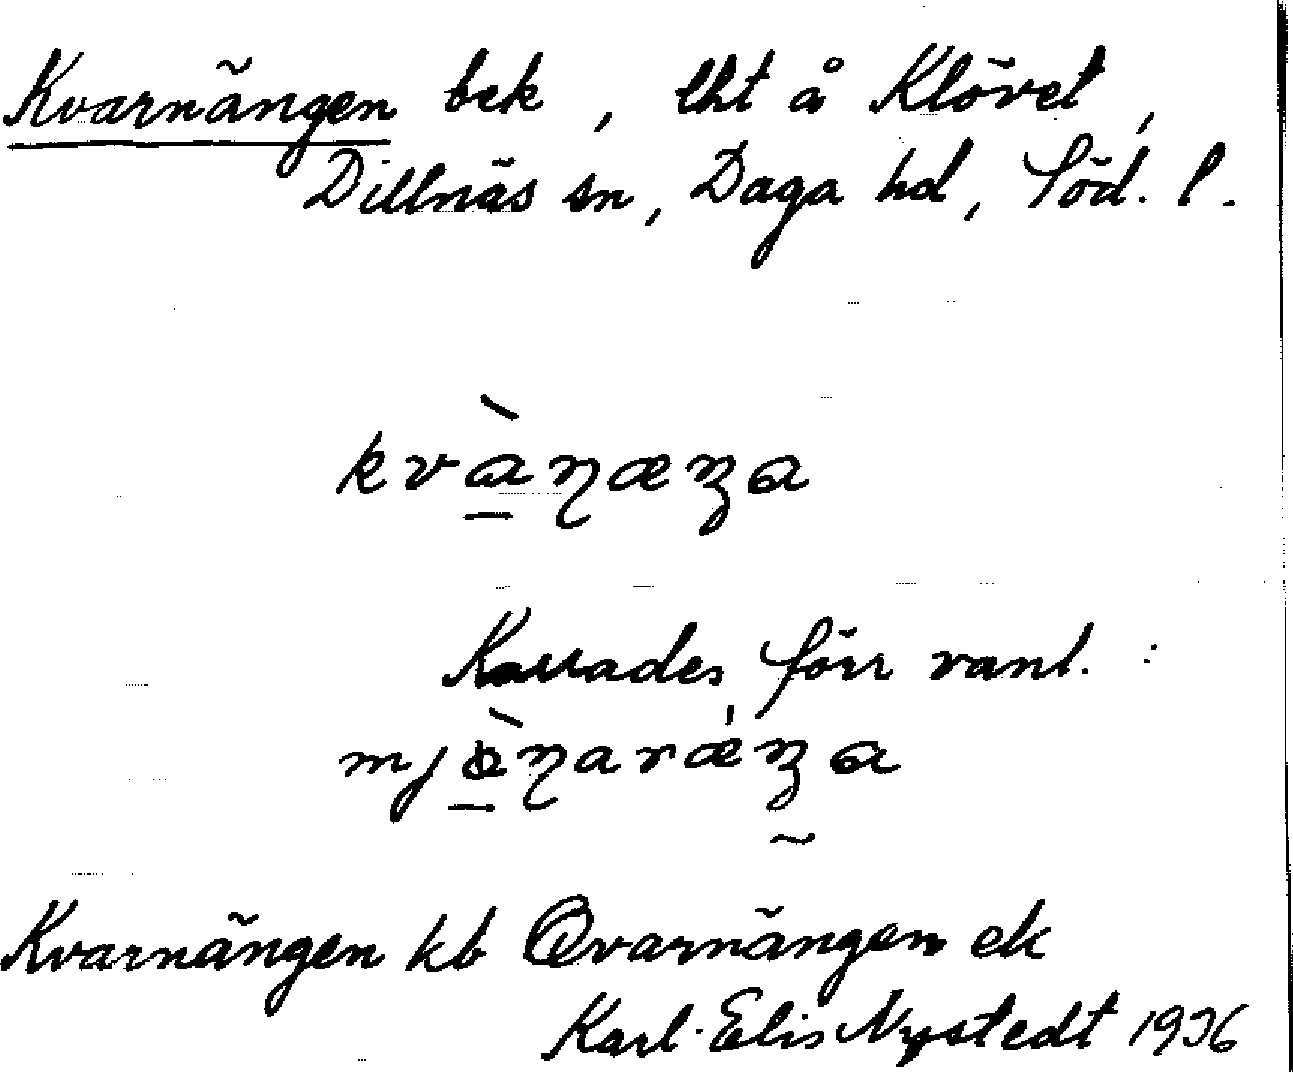 Kvarnängen bek, lht å Klövet,
Dillnäs sn, Daga hd, Söd. l.
förr vanl. :
Kvarnängen kb Qvarnängen ek
Karl-Elis Nystedt 1936